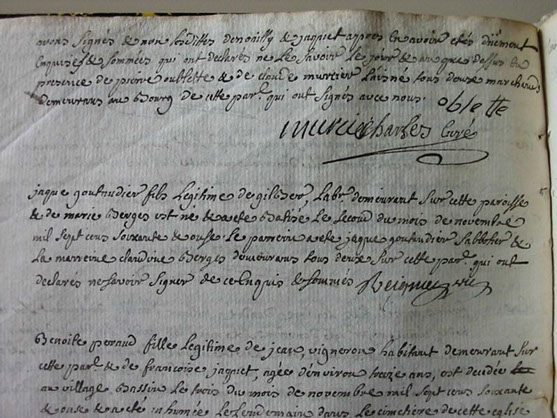 avons signés & non lesdittes denoailly & jaquet apres En avoir etés duëment
Enquises & sommées qui ont declarés ne Le savoir Le jour & an que dessus En
presence de pierre oublette & de claude murcier Laisne tous deux marchands
demeurans au Bourg de cette par. qui ont signés avec nous. oblette
murcier Charles Curé
jaque goutaudier fils Legitime de Lab. demeurant sur cette paroisse
& de marie Berges est né & a eté Batisé Le second du mois de novembre
mil sept cens soixante & onse Le parrein a eté jaque goutaudier &
La marreine claudine Berges demeurans tous deux sur cette par. qui ont
declarés ne savoir signer de ce Enquis & sommés
Benoite peraud fille Legitime de jean, vigneron habitant demeurant sur
cette par. & de francoise jaquet, agée d'environ treize ans, est decedée
au village Bassin Le trois du mois de novembre mil sept cens soixante
& onse & a eté inhumée Le Lendemain dans Le cimetiere de cette eglise